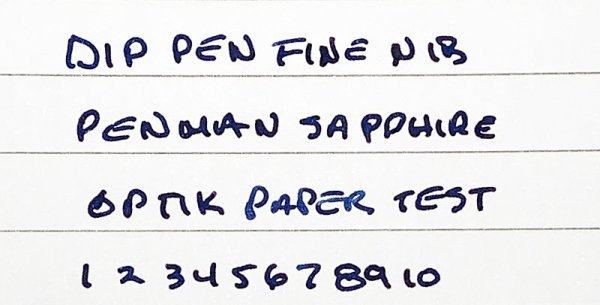 DIP PEN FINE NIB
PENMAN SAPPHIRE
OPTIK PAPER TEST
1 2 3 4 5 6 7 8 9 10